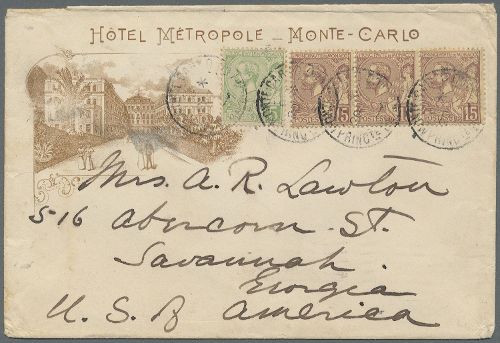 HÔTEL MÉTROPOLE _ MONTE-CARLO
5 15 15 15
Mrs. A. R. Lawton
516 Abercorn St.
Savannah.
Georgia
U. S. of America